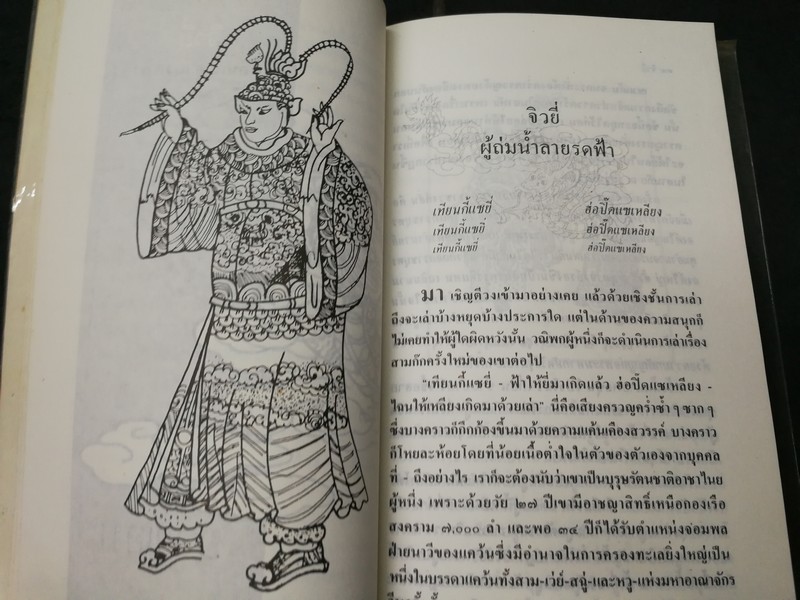 จิวยี่
ผู้ถ่มน้ำลายรดฟ้า
เทียนกี้แซยี่ ฮ่อปี๊ดแซเหลียง
เทียนกี้แซยี่ ฮ่อปี๊ดแซเหลียง
เทียนกี้แซยี่ ฮ่อปี๊ดแซเหลียง
มา เชิญตีวงเข้ามาอย่างเคย แล้วด้วยเชิงชั้นการเล่า
ถึงจะเล่าบ้างหยุดบ้างประการใด แต่ในด้านของความสนุกก็
ไม่เคยทำให้ผู้ใดผิดหวังนั้น วณิพกผู้หนึ่งก็จะดำเนินการเล่าเรื่อง
สามก๊กครั้งใหม่ของเขาต่อไป
"เทียนกี้แซยี่ - ฟ้าให้ยี่มาเกิดแล้ว ฮ่อปี๊ดแซเหลียง -
ไฉนให้เหลียงเกิดมาด้วยเล่า" นี่คือเสียงครวญคร่ำซ้ำ ๆ ซาก ๆ
ซึ่งบางคราวก็กึกก้องขึ้นมาด้วยความแค้นเคืองสวรรค์ บางคราว
ก็โหยละห้อยโดยที่น้อยเนื้อต่ำใจในตัวของตัวเองจากบุคคล
ที่ - ถึงอย่างไร เราก็จะต้องนับว่าเขาเป็นบุรุษรัตนชาติอาชาไนย
ผู้หนึ่ง เพราะด้วยวัย ๒๗ ปีเขามีอาชญาสิทธิ์เหนือกองเรือ
สงคราม ๗,๐๐๐ ลำ และพอ ๓๔ ปีก็ได้รับตำแหน่งจอมพล
ฝ่ายนาวีของแคว้นซึ่งมีอำนาจในการครองทะเลยิ่งใหญ่เป็น
หนึ่งในบรรดาแคว้นทั้งสาม-เว่ย์-สฉู่-และหวู-แห่งมหาอาณาจักร